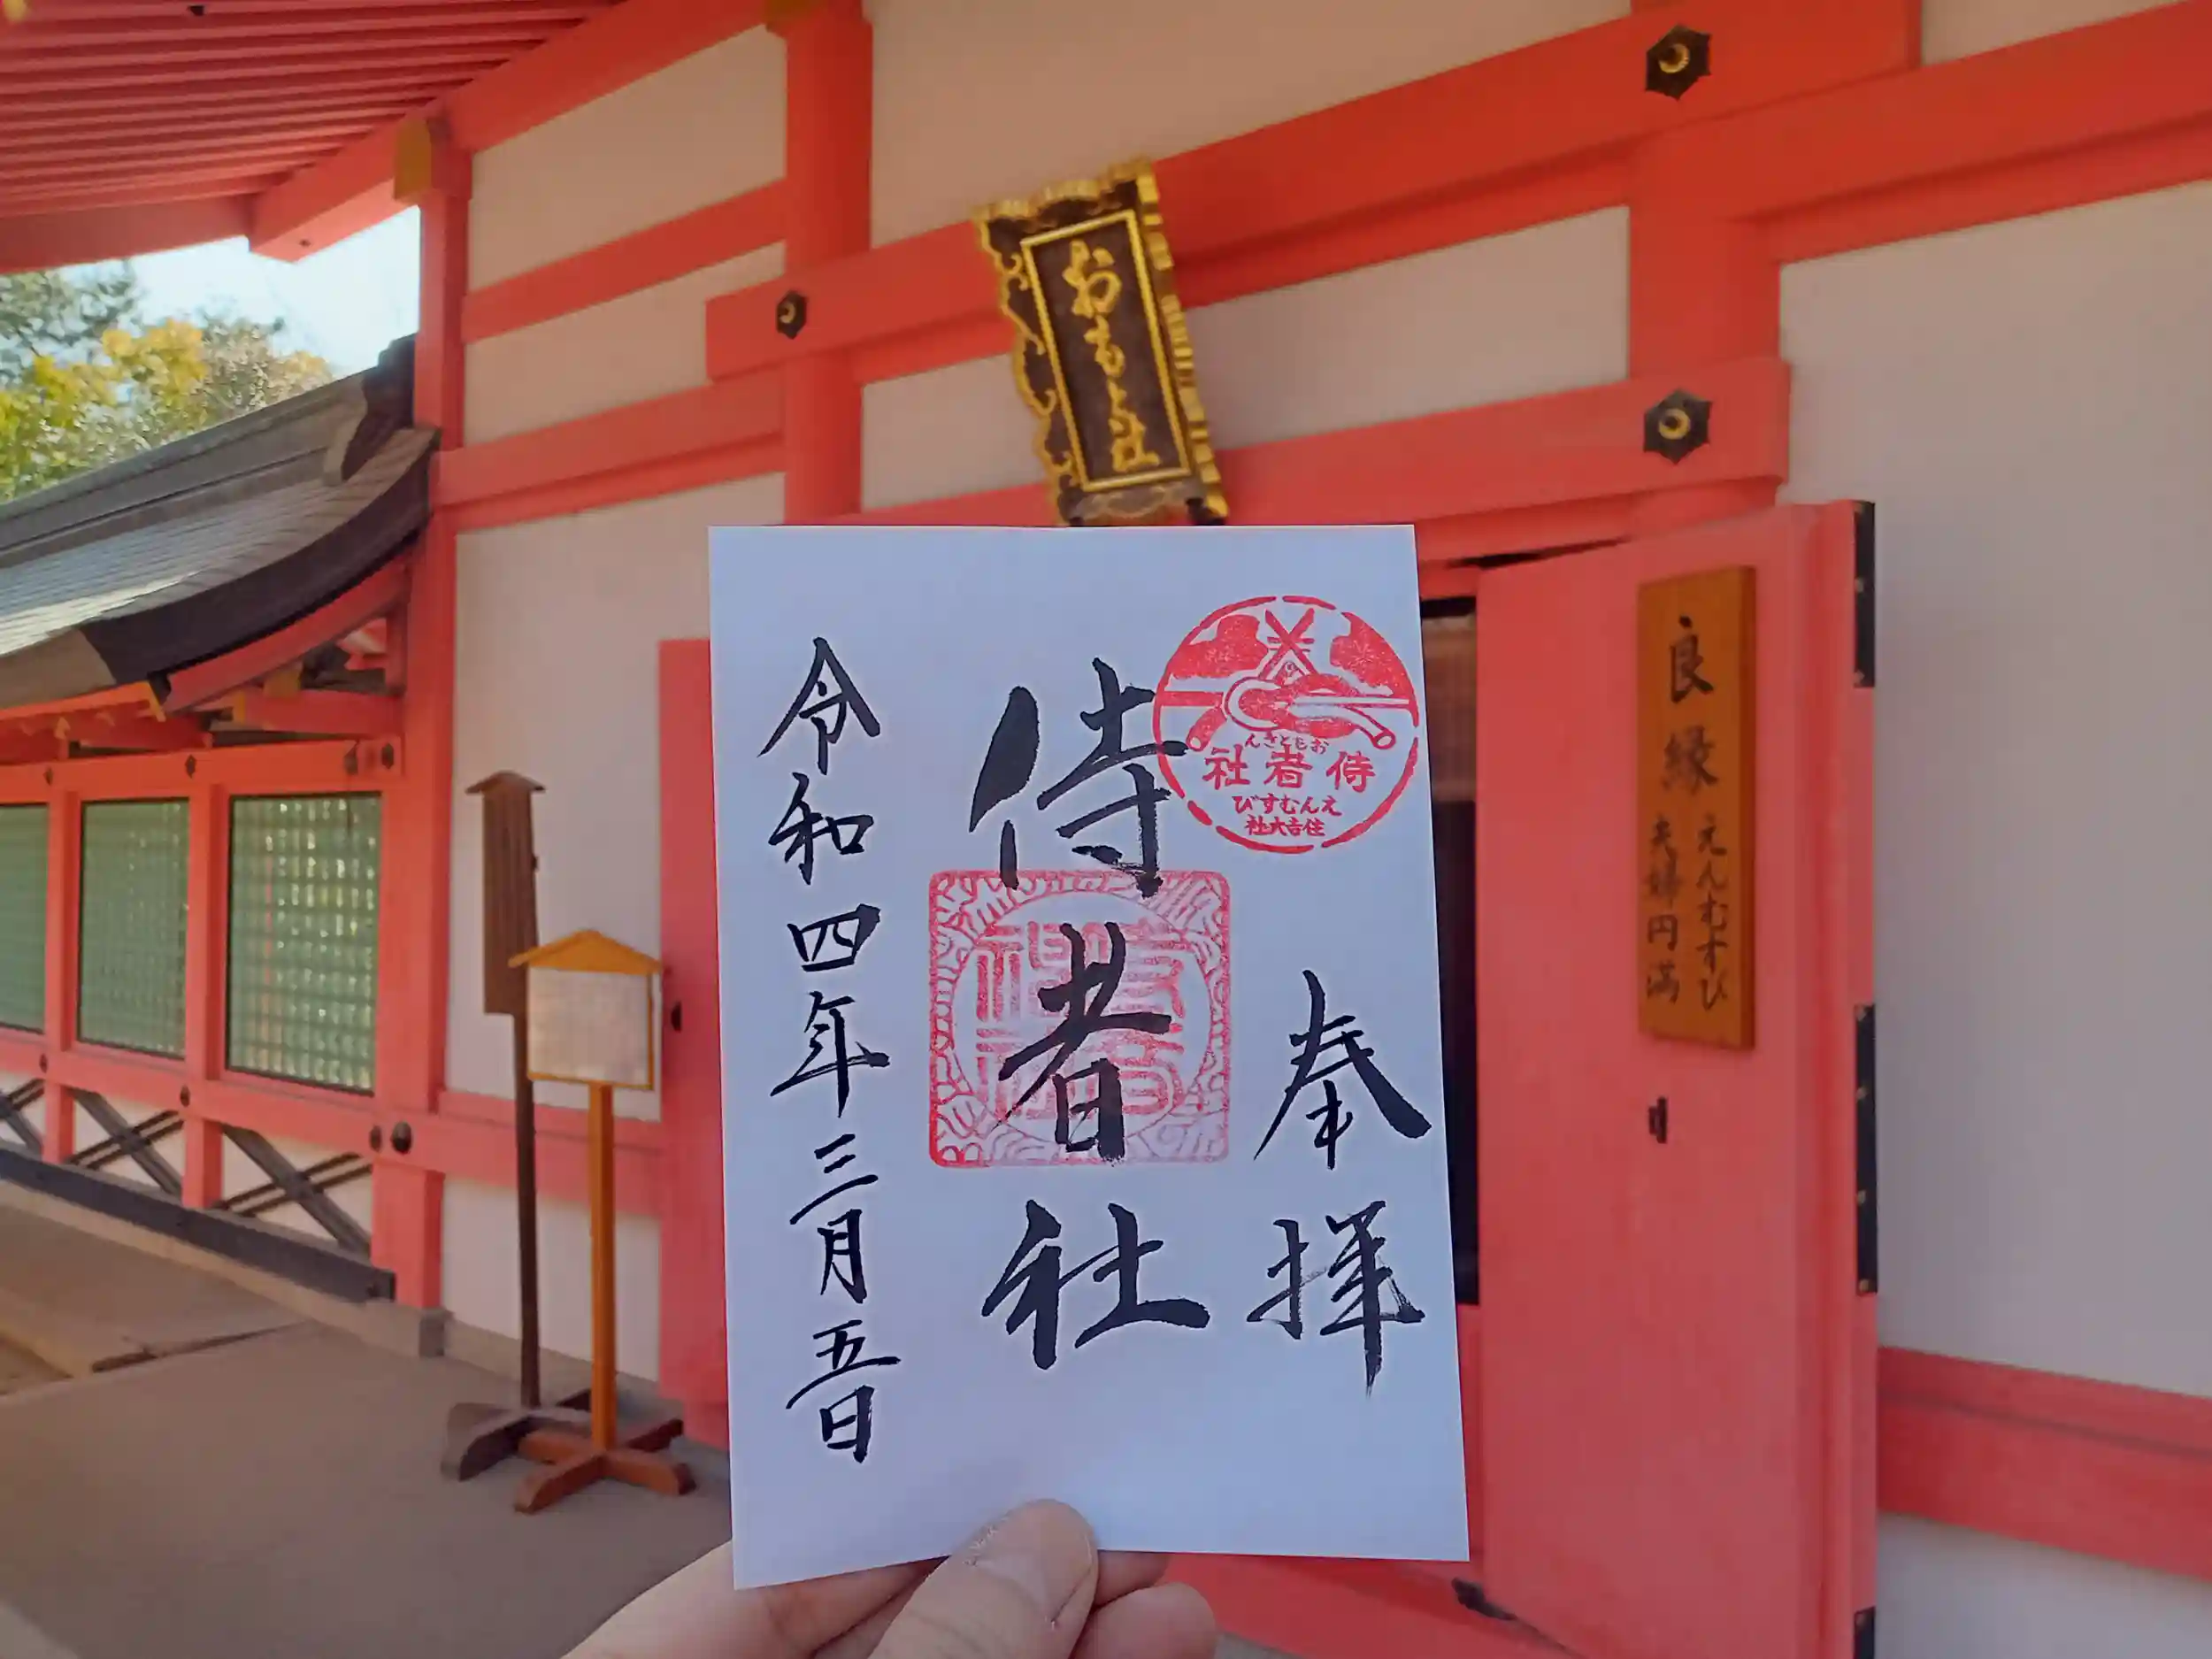 おもと社
奉拝
侍者社
令和四年三月五日
おもとさん
侍者社
えんむすび
住吉大社
良縁
えんむすび
夫婦円満